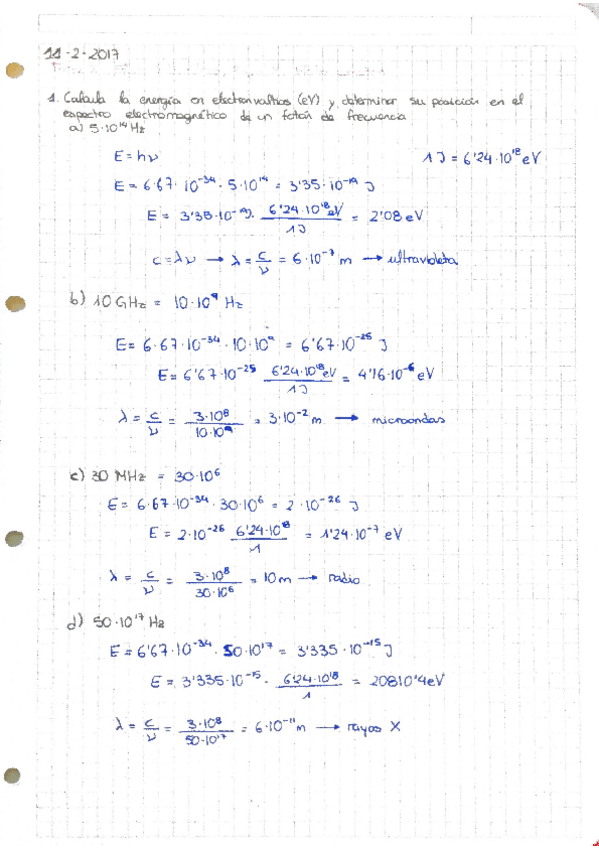 11-2-2017
1. Calcula la energía en electronvoltios (eV) y determinar su posición en el
espectro electromagnético de un fotón de frecuencia
a) 5·10¹⁴ Hz
E = hν
1 J = 6'24·10¹⁸ eV
E = 6'67·10⁻³⁴ · 5·10¹⁴ = 3'35·10⁻¹⁹ J
E = 3'35·10⁻¹⁹ · 6'24·10¹⁸ eV / 1J = 2'08 eV
c = λν → λ = c/ν = 6·10⁻⁷ m → ultravioleta
b) 10 GHz = 10·10⁹ Hz
E = 6'67·10⁻³⁴ · 10·10⁹ = 6'67·10⁻²⁵ J
E = 6'67·10⁻²⁵ 6'24·10¹⁸ eV / 1J = 4'16·10⁻⁶ eV
λ = c/ν = 3·10⁸ / 10·10⁹ = 3·10⁻² m → microondas
c) 30 MHz = 30·10⁶
E = 6'67·10⁻³⁴ · 30·10⁶ = 2·10⁻²⁶ J
E = 2·10⁻²⁶ 6'24·10¹⁸ / 1 = 1'24·10⁻⁷ eV
λ = c/ν = 3·10⁸ / 30·10⁶ = 10m → radio
d) 50·10¹⁷ Hz
E = 6'67·10⁻³⁴ · 50·10¹⁷ = 3'335·10⁻¹⁵ J
E = 3'335·10⁻¹⁵ · 6'24·10¹⁸ / 1 = 20810'4 eV
λ = c/ν = 3·10⁸ / 50·10¹⁷ = 6·10⁻¹¹ m → rayos X